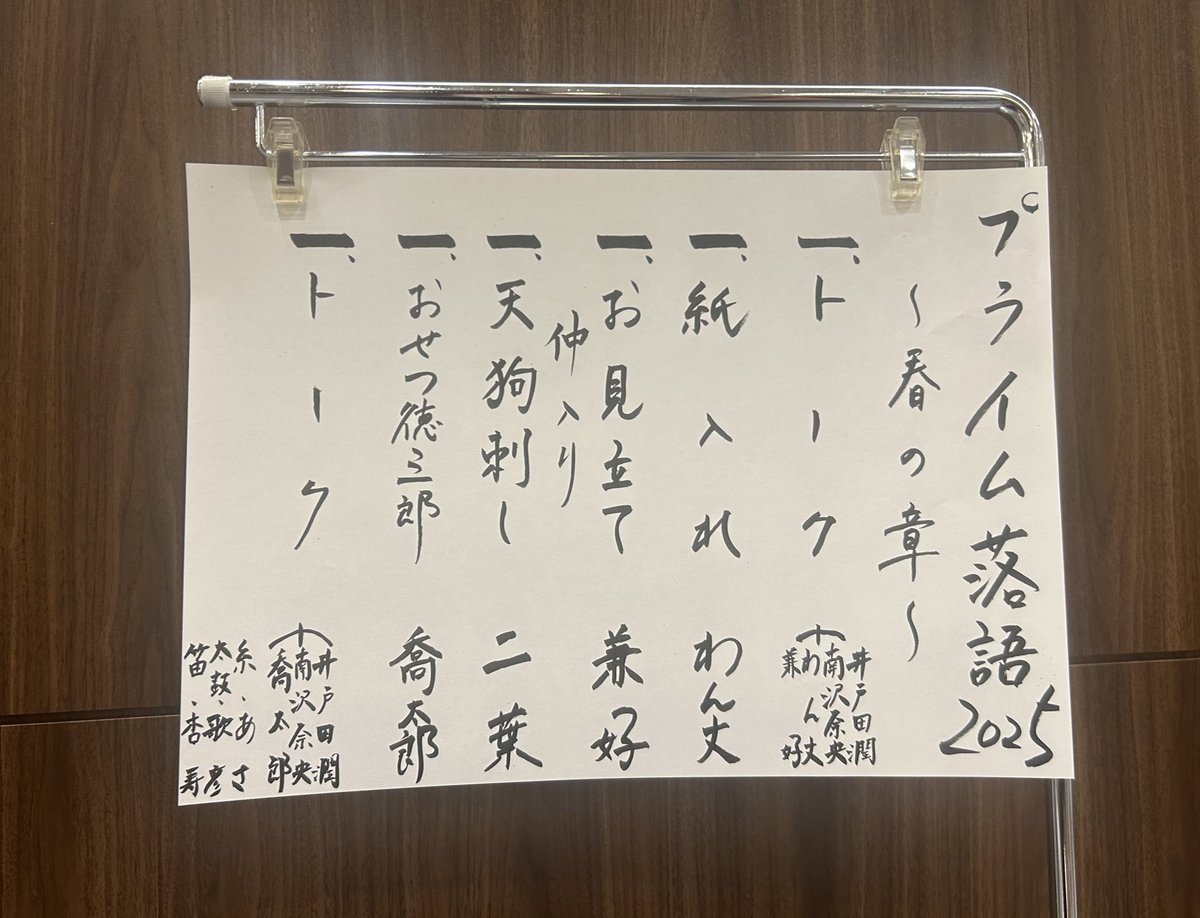 プライム落語2025
〜春の章〜
一、トーク
井戸田潤
南沢奈央
(+わん丈
兼好
一、紙入れ わん丈
一、お見立て 兼好
仲入り
一、天狗刺し 二葉
一、おせつ徳三郎 喬太郎
一、トーク
井戸田潤
南沢奈央
(+喬太郎
糸、あさ
太鼓、歌彦
笛、杏寿